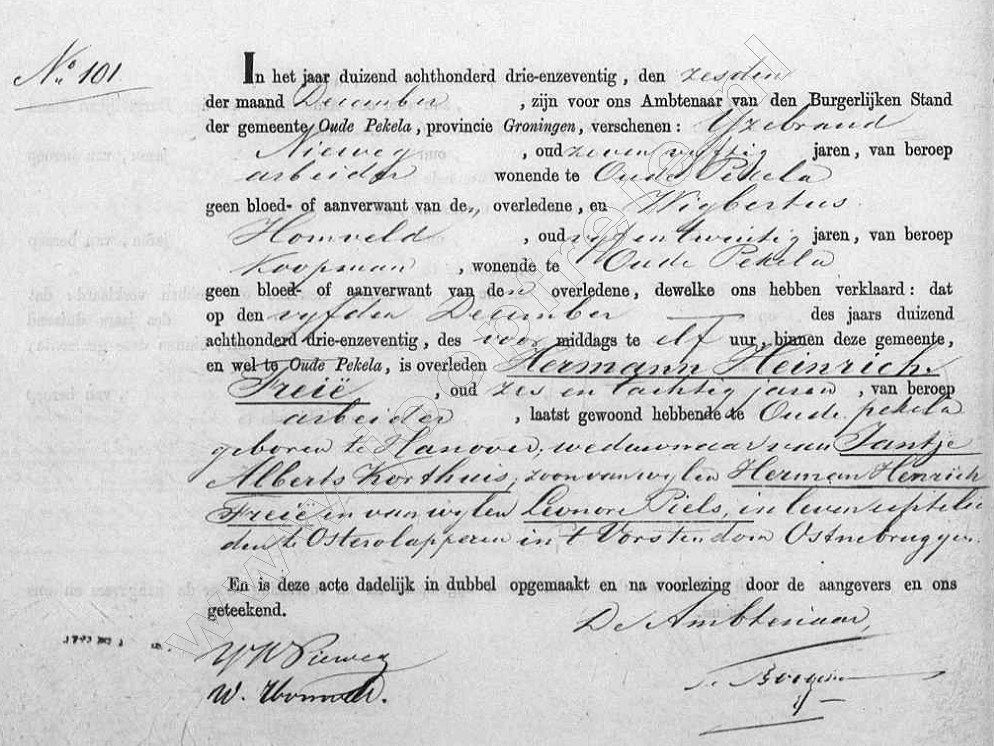 N.o 101
In het jaar duizend achthonderd drie-enzeventig, den zesden
der maand December, zijn voor ons Ambtenaar van den Burgerlijken Stand
der gemeente Oude Pekela, provincie Groningen, verschenen: Yzebrand
Nieweg, oud zeven vyftig jaren, van beroep
arbeider wonende te Oude Pekela
geen bloed- of aanverwant van de, overledene, en Wigbertus
Homveld, oud vyf en twintig jaren, van beroep
Koopman, wonende te Oude Pekela
geen bloed- of aanverwant van de overledene, dewelke ons hebben verklaard: dat
op den vyfden December — des jaars duizend
achthonderd drie-enzeventig, des voor middags te elf uur, binnen deze gemeente,
en wel te Oude Pekela, is overleden Hermann Heinrich
Freië, oud zes en tachtig jaren, van beroep
arbeider, laatst gewoond hebbende te Oude pekela
geboren te Hanover, weduwnaar van Jantje
Alberts Korthuis, zoon van wylen Herman Henrich
Freië en van wylen Leonore Piels, in leven
den te in 't Vorstendom
En is deze acte dadelijk in dubbel opgemaakt en na voorlezing door de aangevers en ons
geteekend.
De Ambtenaar,
Nieweg
W. Homveld.